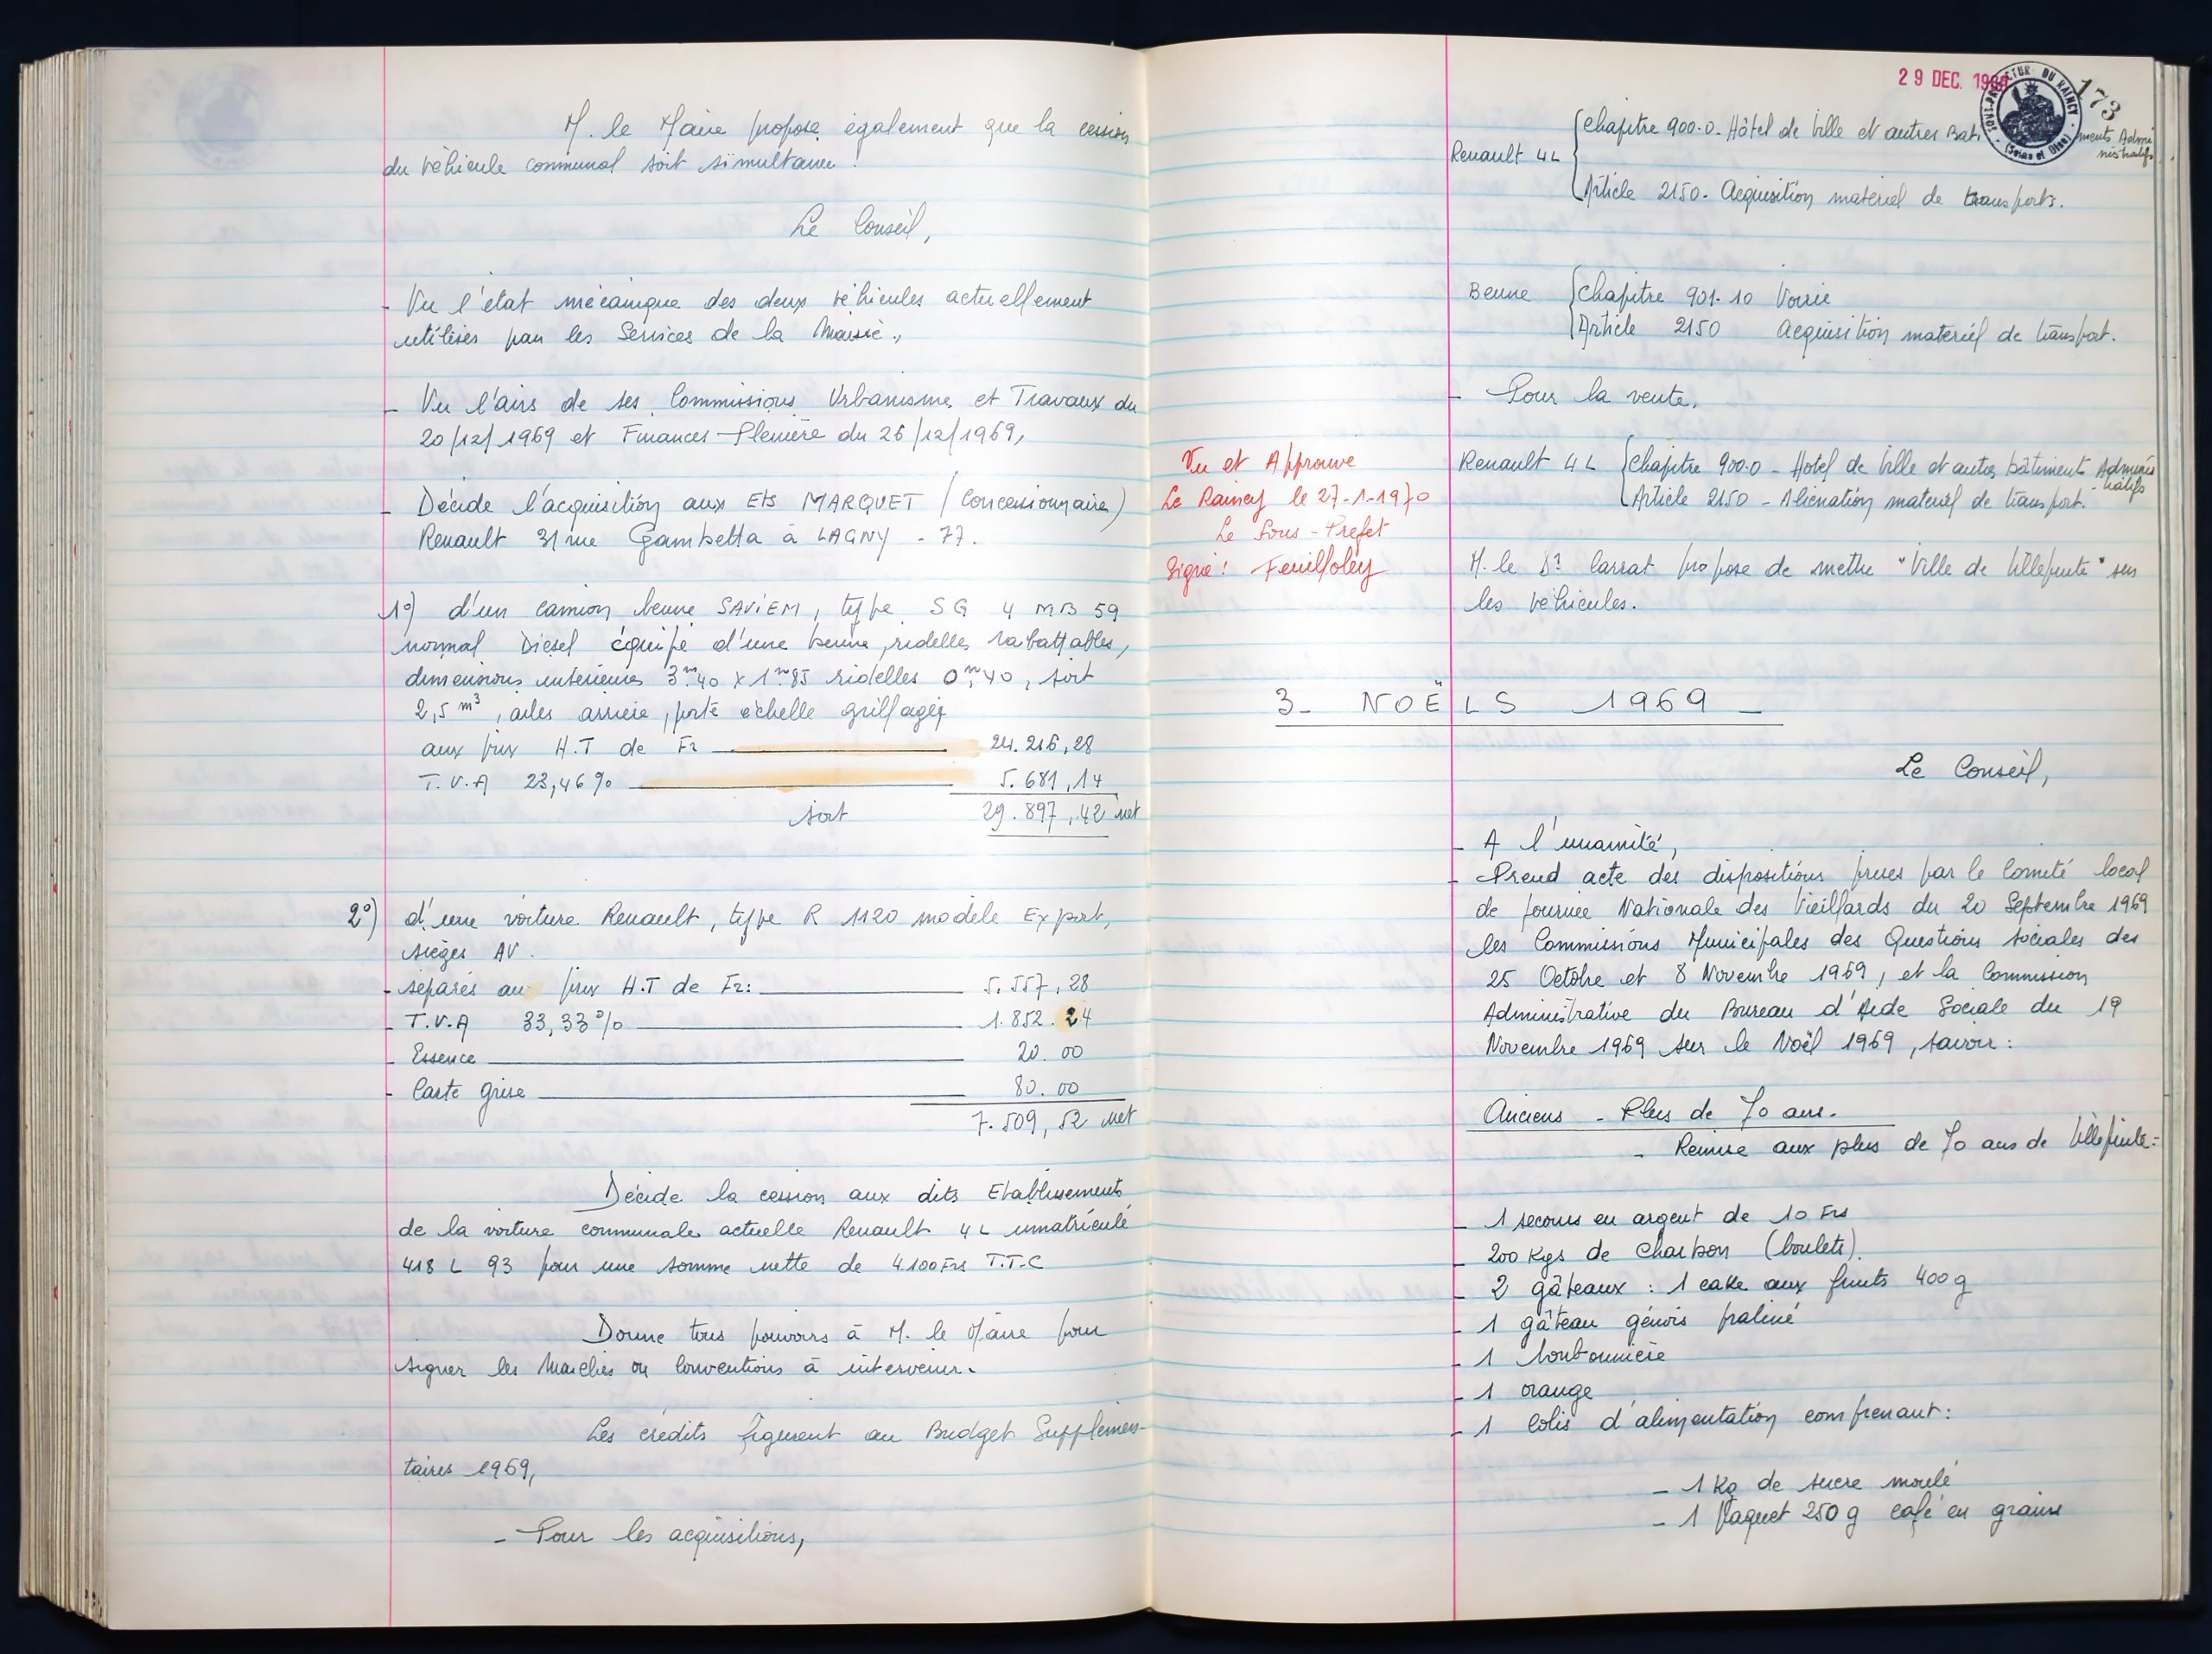 M. le Maire propose également que la cession
du véhicule communal soit simultanée.
Le Conseil,
- Vu l'état mécanique des deux véhicules actuellement
utilisés par les Services de la Mairie,
- Vu l'avis de ses Commissions Urbanisme et Travaux du
20/12/1969 et Finances-Plenière du 26/12/1969,
- Décide l'acquisition aux Ets MARQUET (Concessionnaire)
Renault 31 rue Gambetta à LAGNY - 77.
1°) d'un camion benne SAVIEM, type SG 4 MB 59
normal Diesel équipé d'une benne, ridelles rabattables,
dimensions intérieures 3m40 x 1m85 ridelles 0m40, soit
2,5 m3, ailes arrière, porte échelle grillagé
aux prix H.T de Fr 24.216,28
T.V.A 23,46% 5.681,14
soit 29.897,42 net
2°) d'une voiture Renault, type R 1120 modèle Export,
sièges AV.
- séparés au prix H.T de Fr: 5.557,28
- T.V.A 33,33% 1.852.24
- Essence 20.00
- Carte grise 80.00
7.509,52 net
Décide la cession aux dits Etablissements
de la voiture communale actuelle Renault 4L immatriculé
418 L 93 pour une somme nette de 4.100 Frs T.T.C
Donne tous pouvoirs à M. le Maire pour
signer les Marchés ou Conventions à intervenir.
Les crédits figurent au Budget Supplémen-
taires 1969,
- Pour les acquisitions,
29 DEC. 1969
SOUS-PRÉFECTURE DU RAINCY
(Seine et Oise)
173
Renault 4L { Chapitre 900.0. Hôtel de Ville et autres Batiments Administratifs
Article 2150. Acquisition matériel de transports.
Benne { Chapitre 901.10 Voirie
Article 2150 Acquisition matériel de transport.
- Pour la vente,
Renault 4L { Chapitre 900.0 - Hotel de Ville et autres bâtiments Adminis-
tratifs
Article 2150 - Aliénation matériel de transport.
Vu et Approuvé
Le Raincy le 27-1-1970
Le Sous-Préfet
Signé: Feuilloley
M. le Dr Carrat propose de mettre "Ville de Villepinte" sur
les véhicules.
3- NOËLS 1969 -
Le Conseil,
- A l'unanimité,
- Prend acte des dispositions prises par le Comité local
de Journée Nationale des Vieillards du 20 Septembre 1969
les Commissions Municipales des Questions sociales des
25 Octobre et 8 Novembre 1969, et la Commission
Administrative du Bureau d'Aide Sociale du 19
Novembre 1969 sur le Noël 1969, savoir:
Anciens - Plus de 70 ans.
- Remise aux plus de 70 ans de Villepinte:
- 1 secours en argent de 10 Frs
- 200 Kgs de charbon (boulets).
- 2 gâteaux : 1 cake aux fruits 400g
- 1 gâteau génois praliné
- 1 bonbonnière
- 1 orange
- 1 Colis d'alimentation comprenant:
- 1 Kg de sucre moulé
- 1 Paquet 250 g café en grains